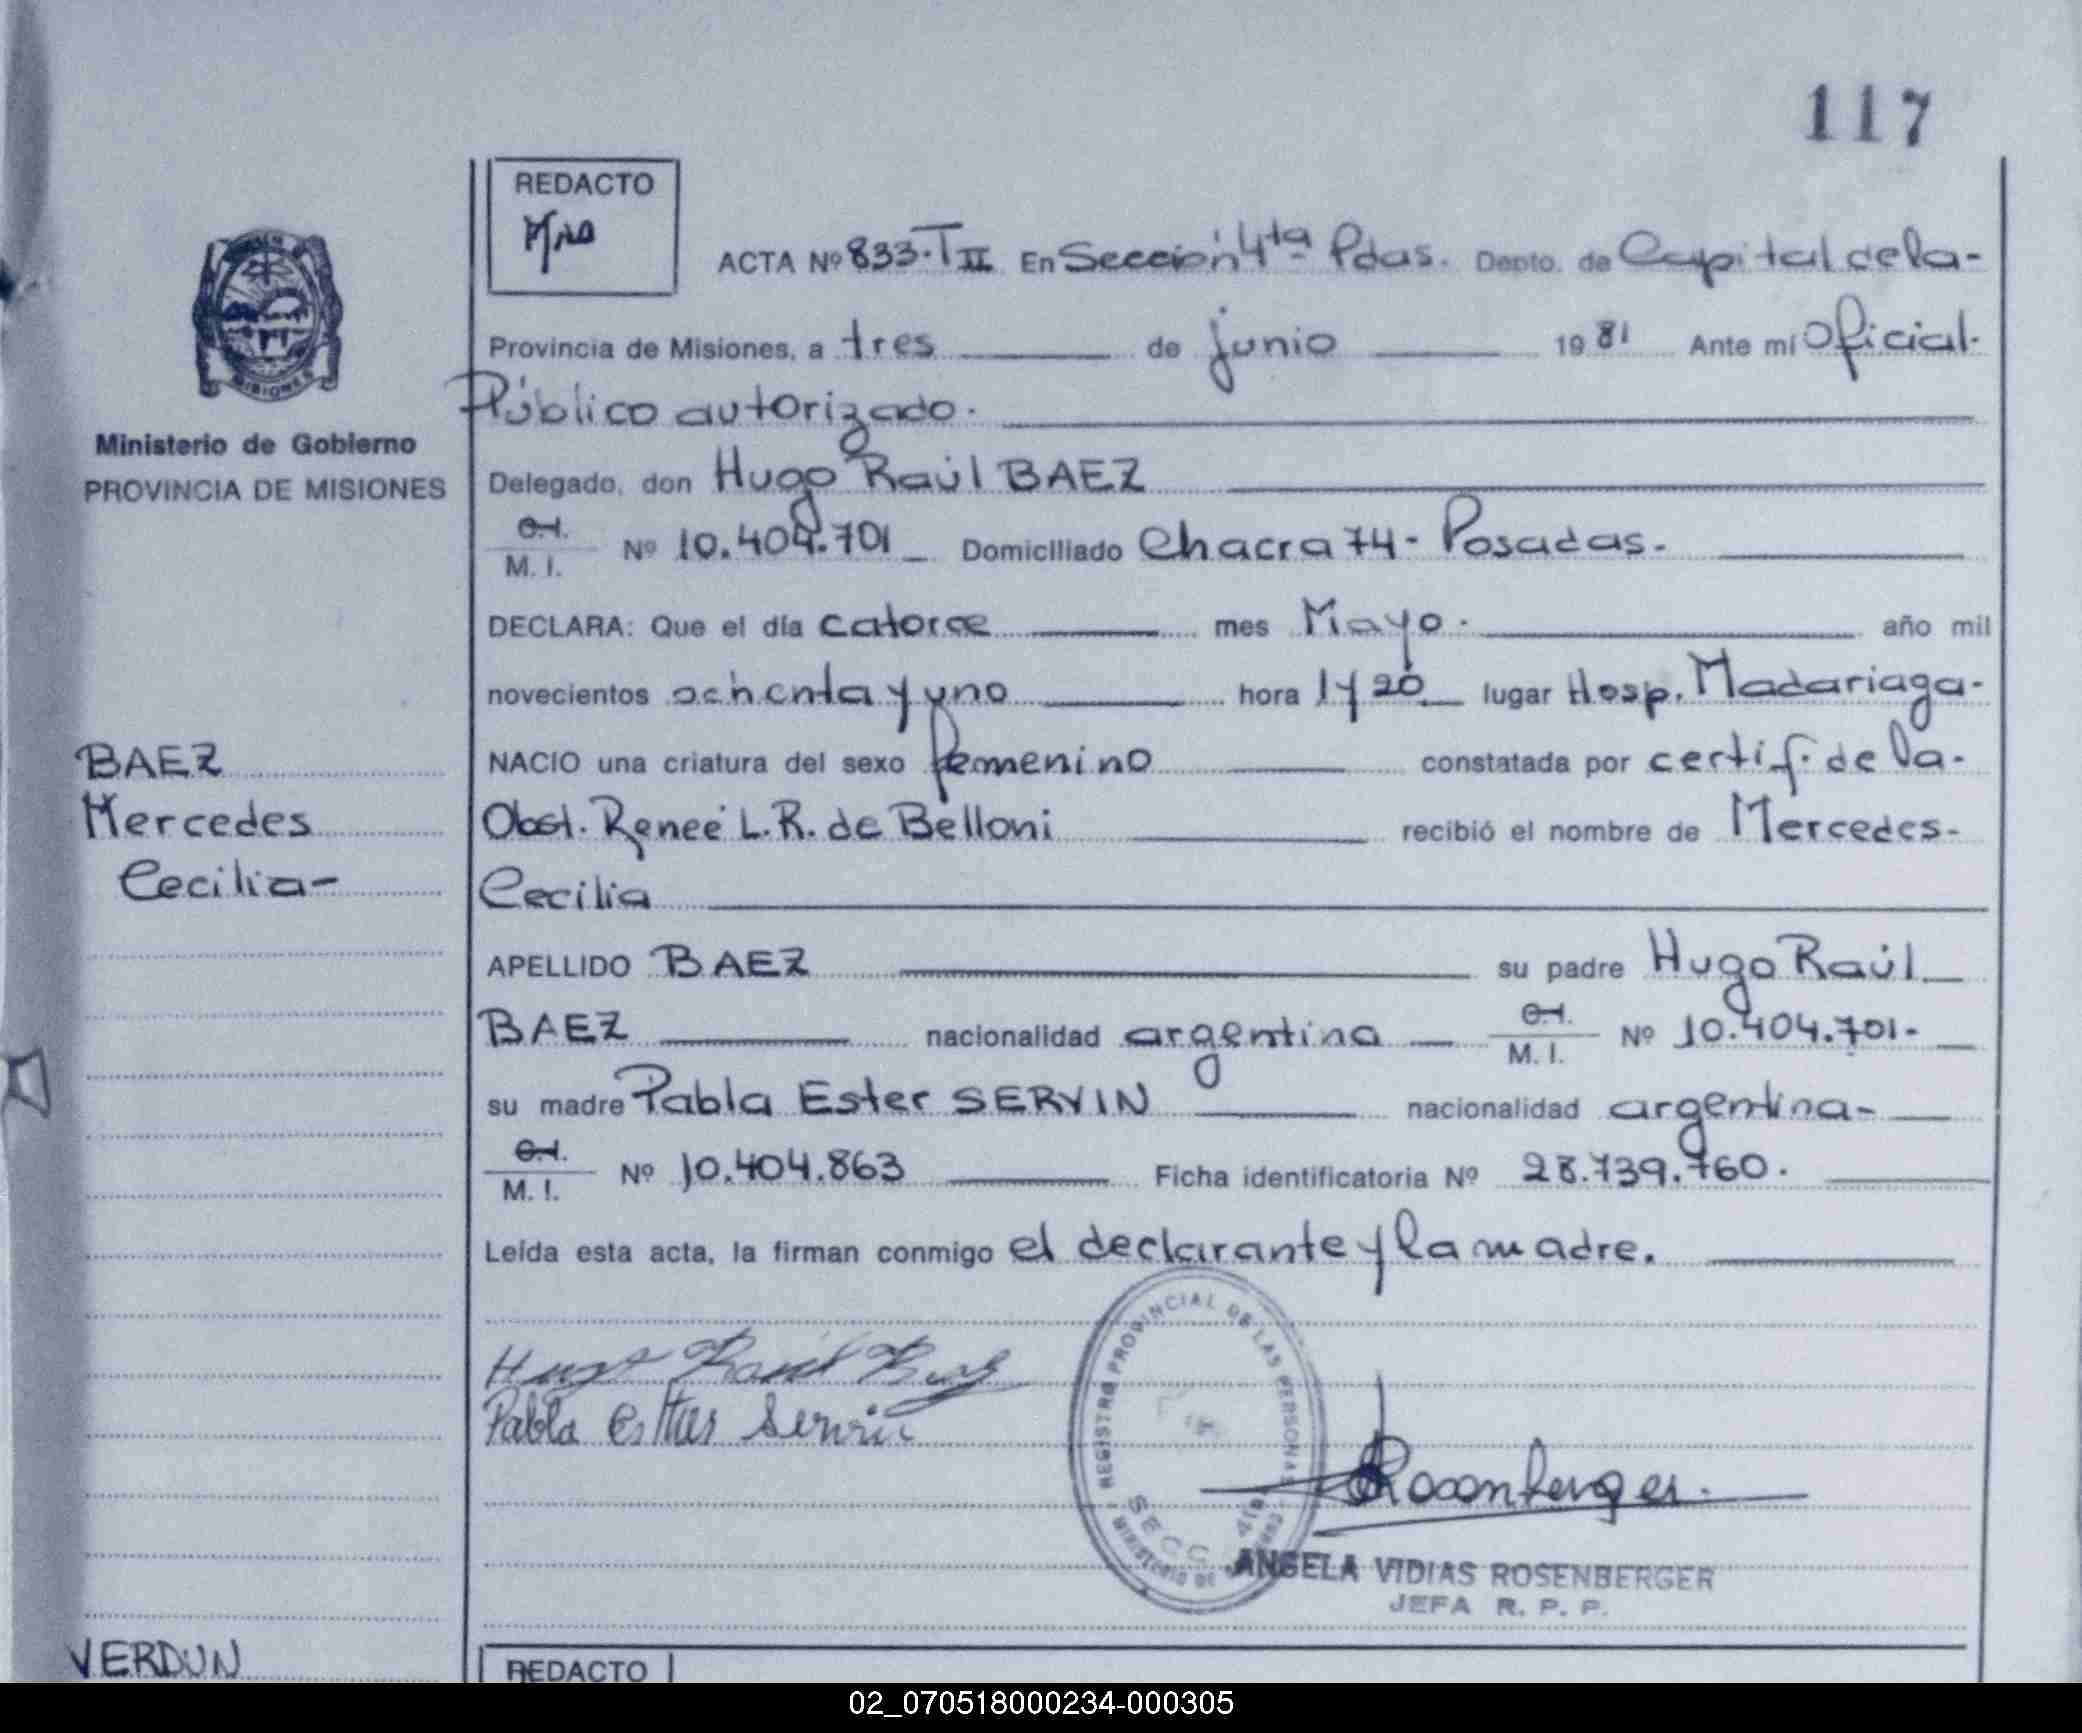 117
REDACTO
ACTA Nº 833. T II En Sección 4ta Pdas. Depto. de Capital de la-
Provincia de Misiones, a tres de junio 1981 Ante mi Oficial.
Público autorizado.
Ministerio de Gobierno
PROVINCIA DE MISIONES
Delegado, don Hugo Raúl BAEZ
C.I.
M. I. Nº 10.404.701 Domiciliado Chacra 74 - Posadas.
DECLARA: Que el día catorce mes Mayo. año mil
novecientos ochenta y uno hora 1 y 20 lugar Hosp. Madariaga-
BAEZ
Mercedes
Cecilia-
NACIO una criatura del sexo femenino constatada por certif. de la-
Obst. Reneé L. R. de Belloni recibió el nombre de Mercedes-
Cecilia
APELLIDO BAEZ su padre Hugo Raúl
BAEZ nacionalidad argentina C.I.
M. I. Nº 10.404.701-
su madre Pabla Ester SERVIN nacionalidad argentina-
C.I.
M. I. Nº 10.404.863 Ficha identificatoria Nº 28.739.760.
Leída esta acta, la firman conmigo el declarante y la madre.
Hugo Raúl Baez
Pabla Servin
REGISTRO PROVINCIAL DE LAS PERSONAS
SECC. 4ta
MINISTERIO DE
Rosenberger.
ANGELA VIDIAS ROSENBERGER
JEFA R. P. P.
VERDUN
REDACTO
02_070518000234-000305